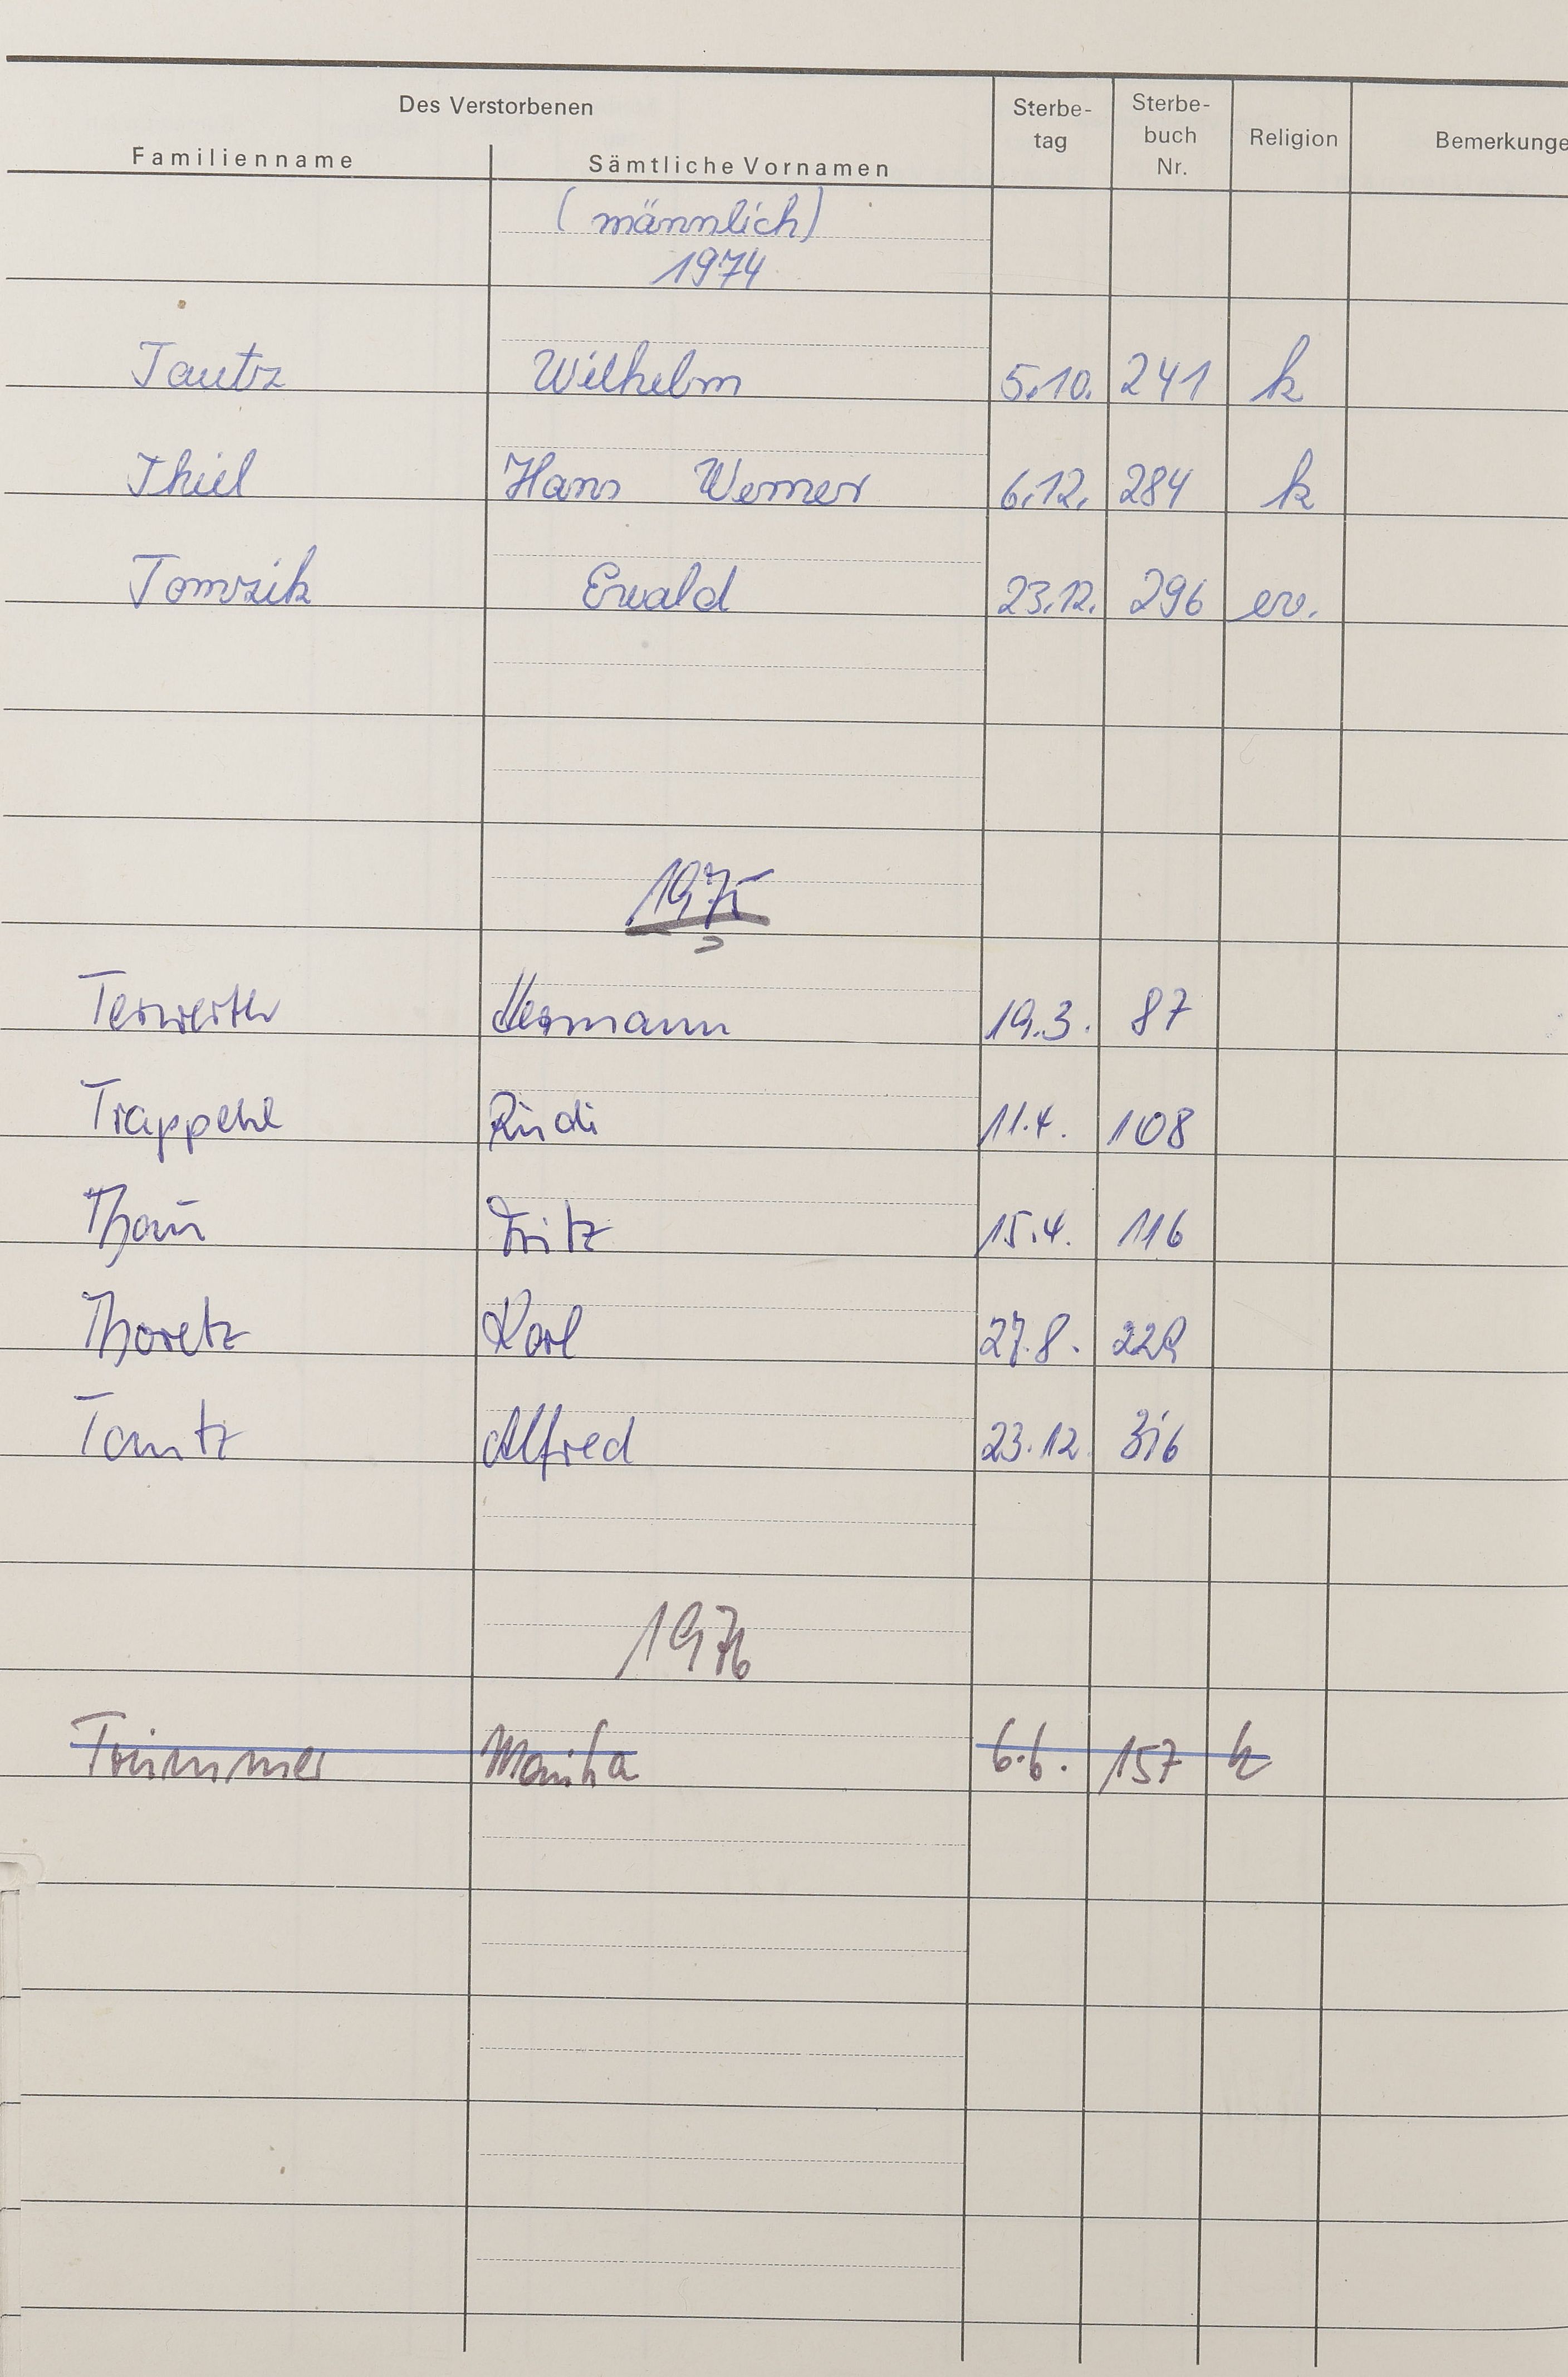 Des Verstorbenen
Familienname Sämtliche Vornamen Sterbe-tag Sterbe-buch Nr. Religion Bemerkunge
(männlich)
1974
Tautz Wilhelm 5.10. 241 k
Thiel Hans Werner 6.12. 284 k
Tomzik Ewald 23.12. 296 ev.
1975
Terwerth Hermann 19.3. 87
Trappehl Rudi 11.4. 108
Thau Fritz 15.4. 116
Thoretz Karl 27.8. 229
Tautz Alfred 23.12. 316
1976
Trümmer 6.6. 157 k